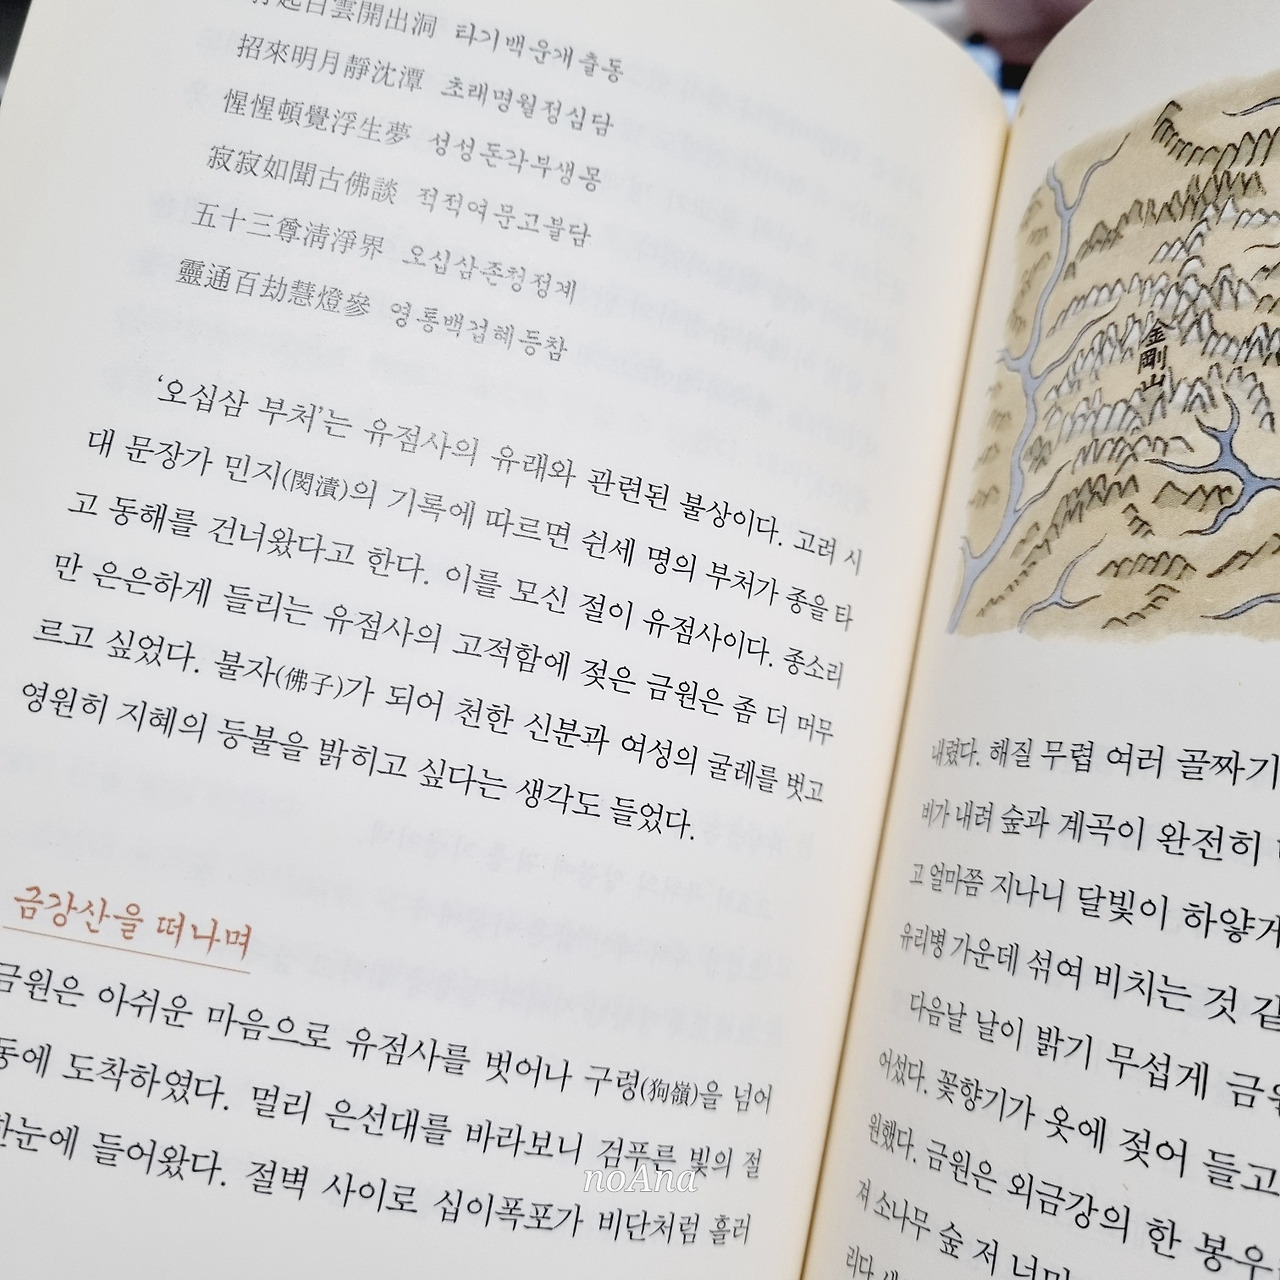 起白雲開出洞 타기백운개출동
招來明月靜沈潭 초래명월정심담
惺惺頓覺浮生夢 성성돈각부생몽
寂寂如聞古佛談 적적여문고불담
五十三尊淸淨界 오십삼존청정계
靈通百劫慧燈參 영통백겁혜등참
‘오십삼 부처’는 유점사의 유래와 관련된 불상이다. 고려 시
대 문장가 민지(閔漬)의 기록에 따르면 쉰세 명의 부처가 종을 타
고 동해를 건너왔다고 한다. 이를 모신 절이 유점사이다. 종소리
만 은은하게 들리는 유점사의 고적함에 젖은 금원은 좀 더 머무
르고 싶었다. 불자(佛子)가 되어 천한 신분과 여성의 굴레를 벗고
영원히 지혜의 등불을 밝히고 싶다는 생각도 들었다.
금강산을 떠나며
금원은 아쉬운 마음으로 유점사를 벗어나 구령(狗嶺)을 넘어
동에 도착하였다. 멀리 은선대를 바라보니 검푸른 빛의 절
한눈에 들어왔다. 절벽 사이로 십이폭포가 비단처럼 흘러
noAna
金剛山
내렸다. 해질 무렵 여러 골짜기
비가 내려 숲과 계곡이 완전히
고 얼마쯤 지나니 달빛이 하얗게
유리병 가운데 섞여 비치는 것 같
다음날 날이 밝기 무섭게 금원
어섰다. 꽃향기가 옷에 젖어 들고
원했다. 금원은 외금강의 한 봉우
져 소나무 숲 저 너머
리다.